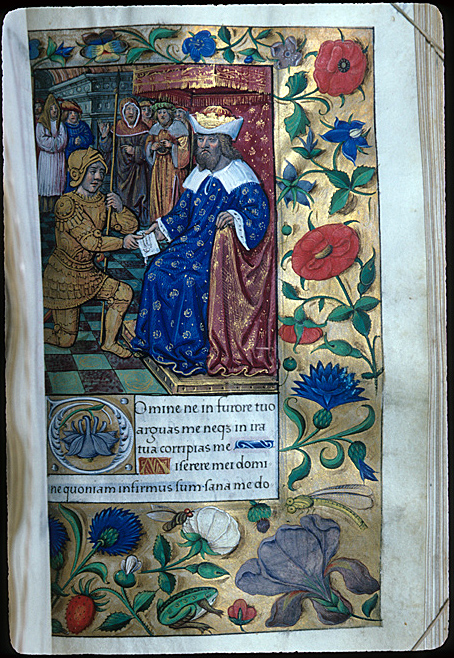 Domine ne in furore tuo
arguas me neqz in ira
tua corripias me
Miserere mei domi
ne quoniam infirmus sum. sana me do